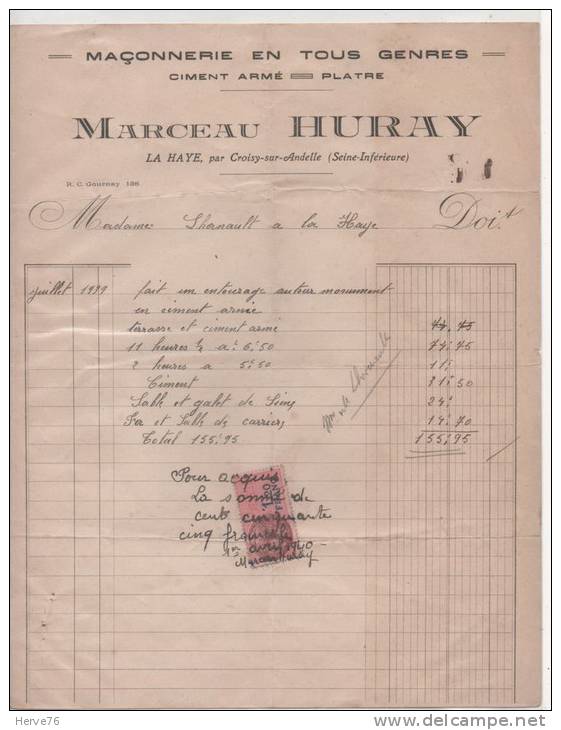 MAÇONNERIE EN TOUS GENRES
CIMENT ARMÉ PLATRE
MARCEAU HURAY
LA HAYE, par Croisy-sur-Andelle (Seine-Inférieure)
R. C. Gournay 136
Madame Lhernault a la Haye Doit
juillet 1939 fait un entourage autour monument
en ciment armé
terrasse et ciment armé 74,75
11 heures ½ a 6,50 74,75
2 heures a 5,50 11,
Ciment 31,50
Sable et galet de Seine 24,
Fer et Sable de carrier 14,70
Total 155,95 155,95
Pour acquis
La somme de
cent cinquante
cinq francs
1er avril 1940
Marceau Huray
Herve76
www.delcampe.net